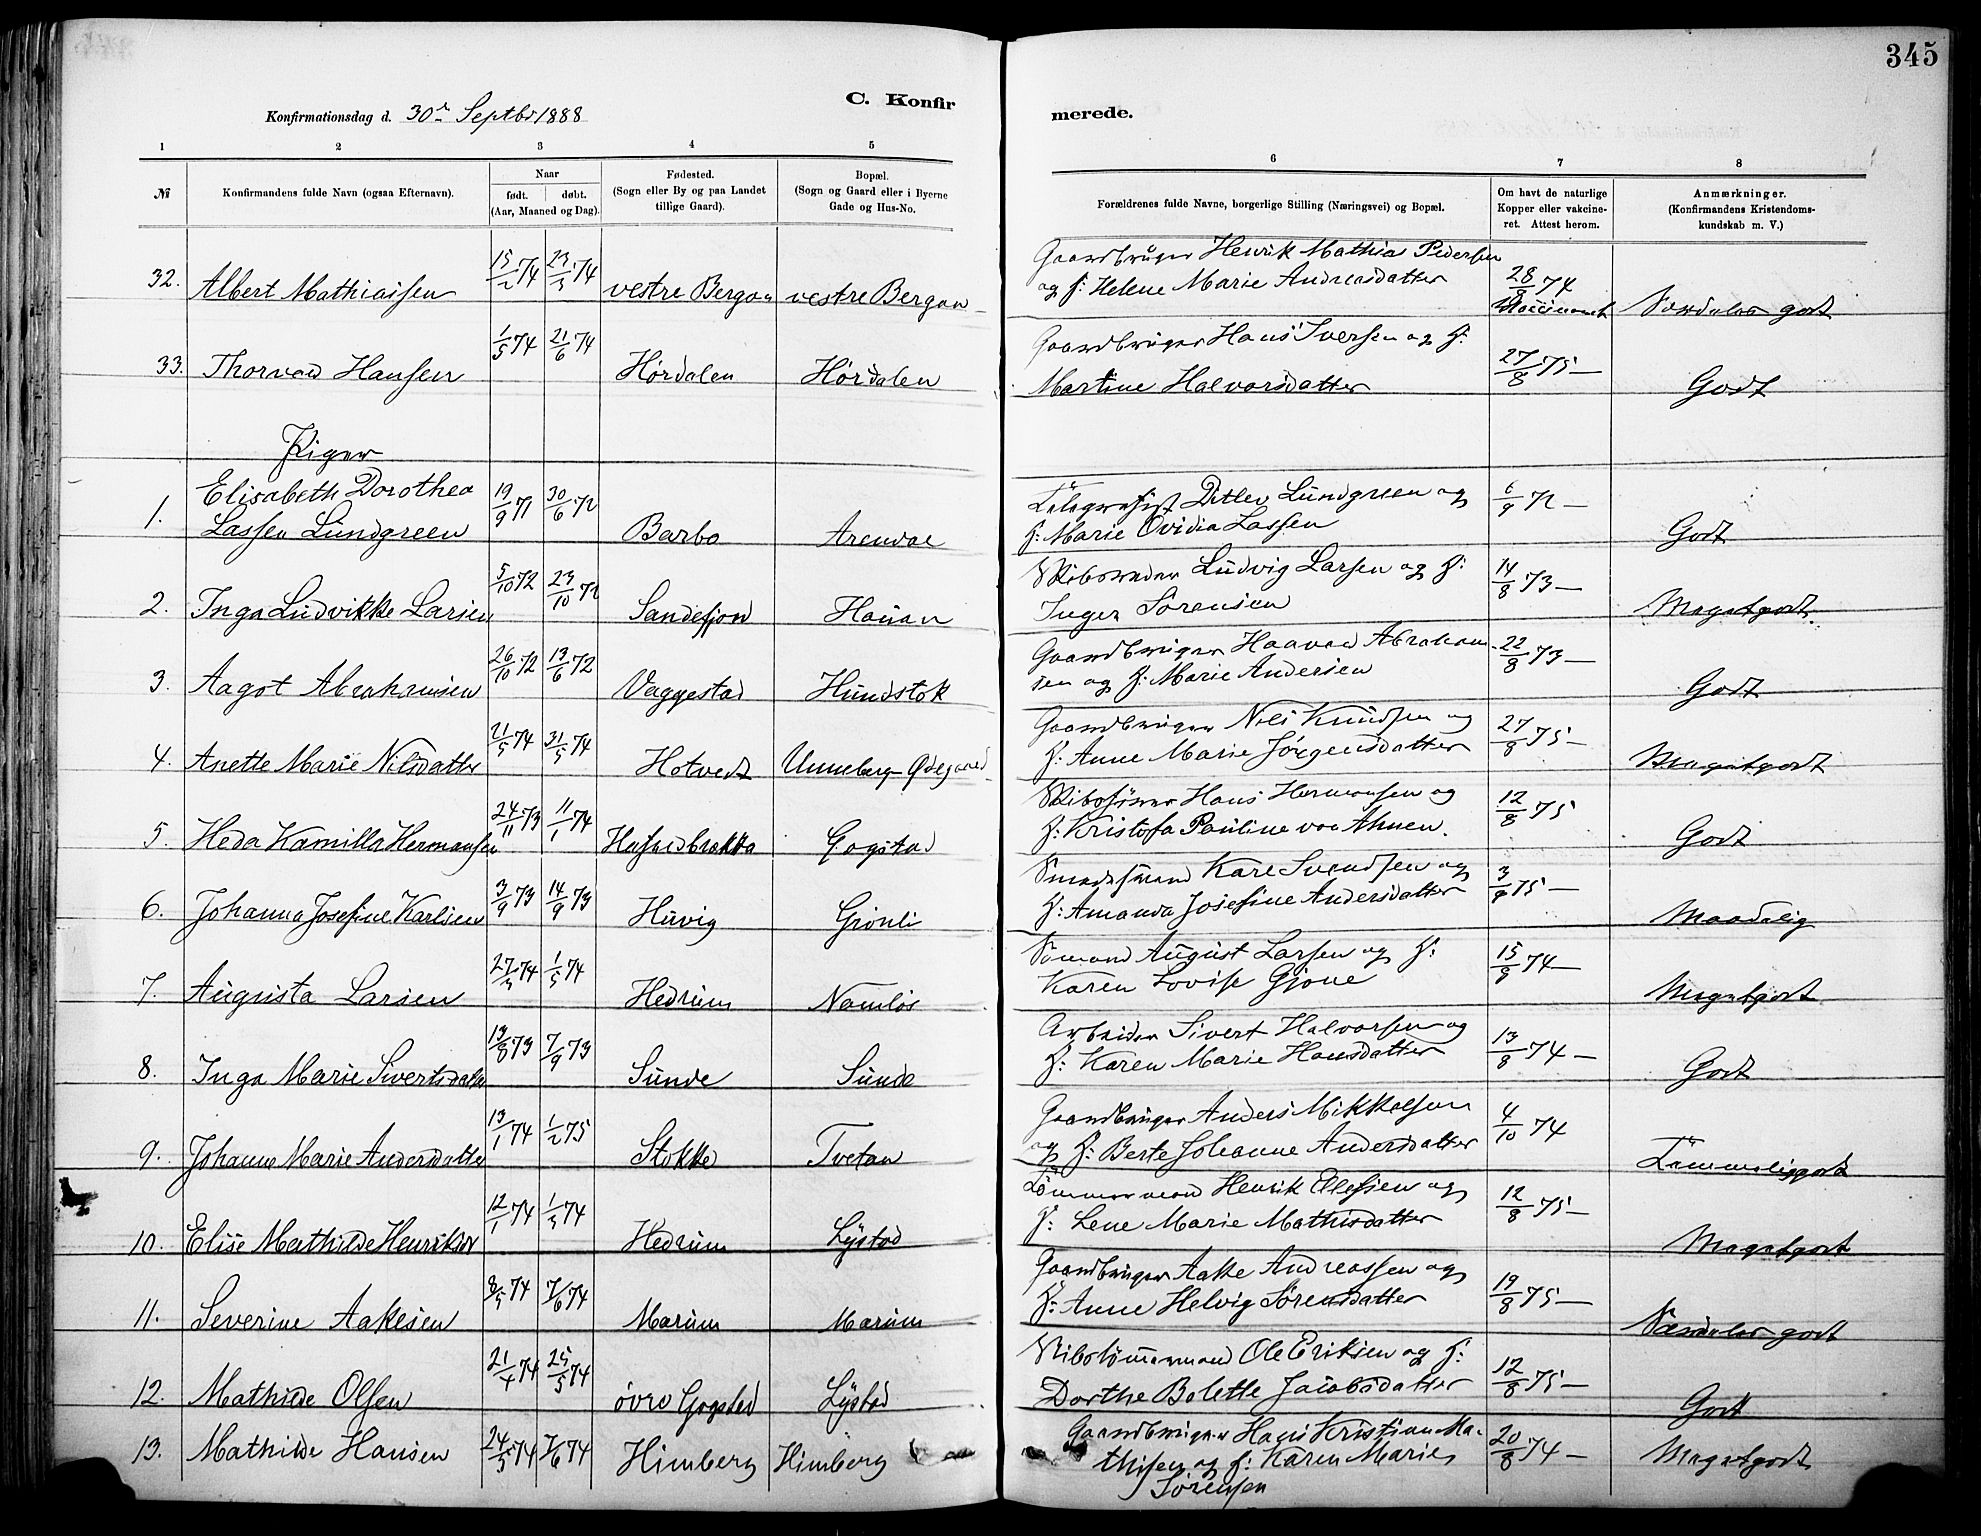 345
C. Konfir
merede.
Konfirmationsdag d. 30te Septbr 1888
1 2 3 4 5 6 7 8
№
Konfirmandens fulde Navn (ogsaa Efternavn).
Naar
født. døbt.
(Aar, Maaned og Dag).
Fødested.
(Sogn eller By og paa Landet
tillige Gaard).
Bopæl.
(Sogn og Gaard eller i Byerne
Gade og Hus-No.
Forældrenes fulde Navne, borgerlige Stilling (Næringsvei) og Bopæl.
Om havt de naturlige
Kopper eller vakcine-
ret. Attest herom.
Anmærkninger.
(Konfirmandens Kristendoms-
kundskab m. V.)
Gaardbruger Henrik Mathias Pedersen
32. Albert Mathiassen 15/2 74 23/3 74 vestre Bergan vestre Bergan og H: Helene Marie Andreasdatter 28/8 74 Særdeles godt
Gaardbruger Hans Iversen og H:
33. Thorvald Hansen 1/5 74 21/6 74 Hørdalen Hørdalen Martine Halvorsdatter 27/8 75 — Godt
Piger
Elisabeth Dorothea Telegrafist Ditlev Lundgreen og
1. Lassen Lundgreen 19/9 71 30/6 72 Barbo Arendal H: Marie Ovidia Lassen 6/9 72 — Godt
Ludvig Larsen og H:
2. Inga Ludvikke Larsen 5/10 72 23/10 72 Sandefjord Hauan Inger Sørensen 14/8 73 — Megetgodt.
Gaardbruger Haavald Abraham
3. Aagot Abrahamsen 26/10 72 13/6 72 Vaggestad Hundstok sen og H: Marie Andersen 22/8 73 — Godt
Gaardbruger Nils Knudsen og
4. Anette Marie Nilsdatter 21/5 74 31/5 74 Hotvedt Unneberg Ødegaard H: Anne Marie Jörgensdatter 27/8 75 — Megetgodt
Skibsfører Hans Hermansen og
5. Heda Kamilla Hermansen 24/11 73 11/1 74 Gogstad H: Kristofa Pauline von Ahnen. 12/8 75 Godt
Smedsvend Karl Svendsen og
6. Johanna Josefine Karlsen 3/9 73 14/9 73 Huvig Grönli H: Amanda Josefine Andersdatter 3/9 75 — Maadelig
Sømand August Larsen og H:
7. Augusta Larsen 27/3 74 1/5 74 Hedrum Namløs Karen Lovise Gjone 15/9 74 — Megetgodt
Arbeider Sivert Halvorsen og
8. Inga Marie Sivertsdatter 13/8 73 7/9 73 Sunde Sunde H: Karen Marie Hansdatter 13/8 74 — Godt
Gaardbruger Anders Mikkelsen
9. Johanne Marie Andersdatter 13/1 74 1/2 75 Stokke Tvetan og H: Berte Johanne Andersdatter 4/10 74 Temmeliggodt
Tømmermand Henrik Olessen og
10. Elise Mathilde Henriksen 12/1 74 1/3 74 Hedrum Lÿstad H: Lene Marie Mathisdatter 12/8 75 — Megetgodt
Gaardbruger Aake Andreassen og
11. Severine Aakesen 8/5 74 7/6 74 Marum Marum H: Anne Helvig Sørensdatter 19/8 75 — Særdeles godt
Skibstømmermand Ole Eriksen og H:
12. Mathilde Olsen 21/4 74 25/5 74 øvre Gogstad Lÿstad Dorthe Bolette Jacobsdatter 12/8 75 — Godt
Gaardbruger Hans Kristian Ma-
13. Mathilde Hansen 24/5 74 7/6 74 Himberg Himberg thisen og H: Karen Marie 20/8 74 — Megetgodt
Sørensen